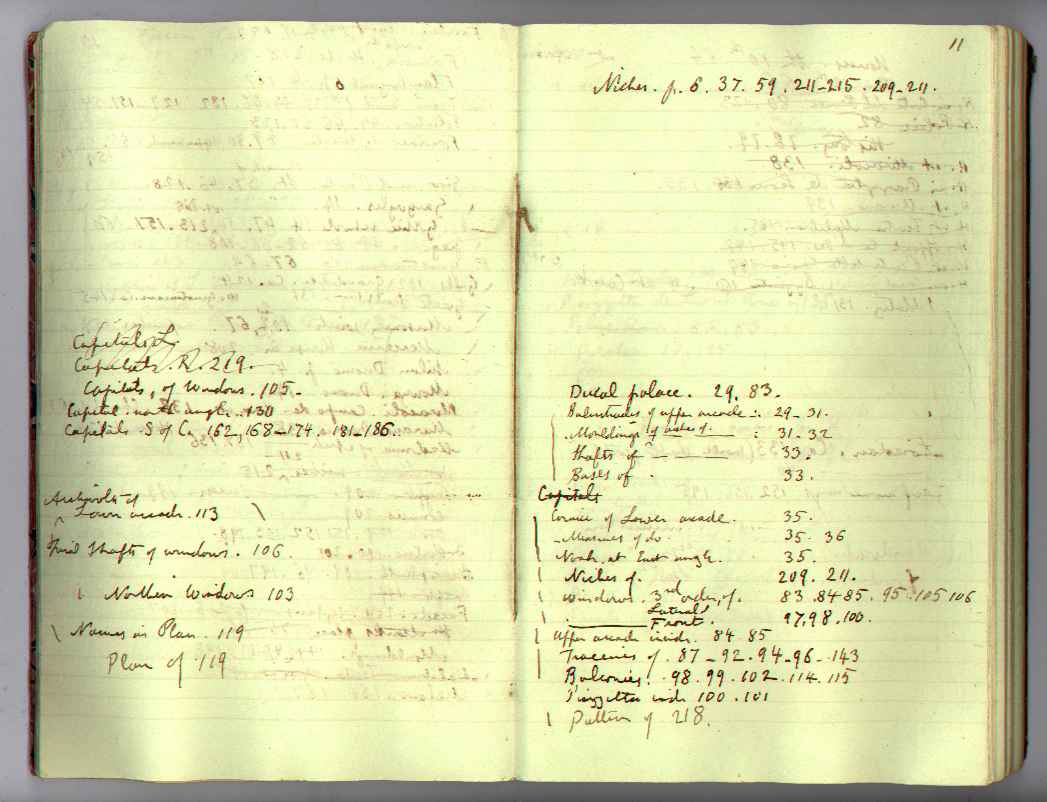 Capitals, L.
Capitals. R. 219.
Capitals, of Windows. 105.
Capital. north angle. 130
Capitals. S of C. 162, 168-174. 181-186.
Archivolts of
Lower arcade. 113
shafts of windows. 106.
Northern Windows 103
Names in Plan. 119
Plan of 119
11
Niches. p. 6. 37. 59. 211-215. 209-211.
Ducal palace. 29, 83.
Balustrades of upper arcade -: 29-31.
Mouldings of arches of. : 31-32
Shafts of - 33.
Bases of - 33.
Capitals
Cornice of Lower arcade. 35.
Measures of do. 35. 36
Noah. at East angle. 35.
Niches of. 209. 211.
Windows. 3rd order, of. 83. 84 85. 95. 105 106
Lateral
Front. 97, 98. 100.
Upper arcade inside. 84 85
Traceries of. 87-92. 94-96-143
Balconies. 98. 99. 102. 114. 115
Piazzetta end. 100. 101
Pattern of 218.